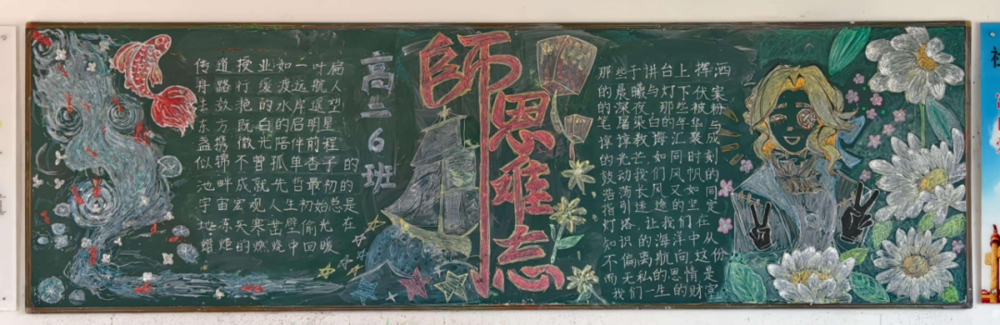 传道授业如一叶扁
舟路行缓渡远航人
去数抱的水岸遥望
东方既白的启明星
盏携微光陪伴前程
似锦不曾孤单杏子的
池畔成就先当最初的
宇宙宏观人生初始总是
地冻天寒凿壁偷光在
蜡炬的燃烧中回暖
高二6班
師恩难忘
那些于讲台上挥洒
的晨曦与灯下伏案
的深夜，那些被粉
笔屠染白的年华与
谆谆教诲汇聚成
的光芒，如同时刻
鼓动我们风帆的
浩荡长风又如同
指引迷途的坚定
灯路，让我们在
知识的海洋中从
不偏离航向，这份
而无私的恩情是
我们一生的财富